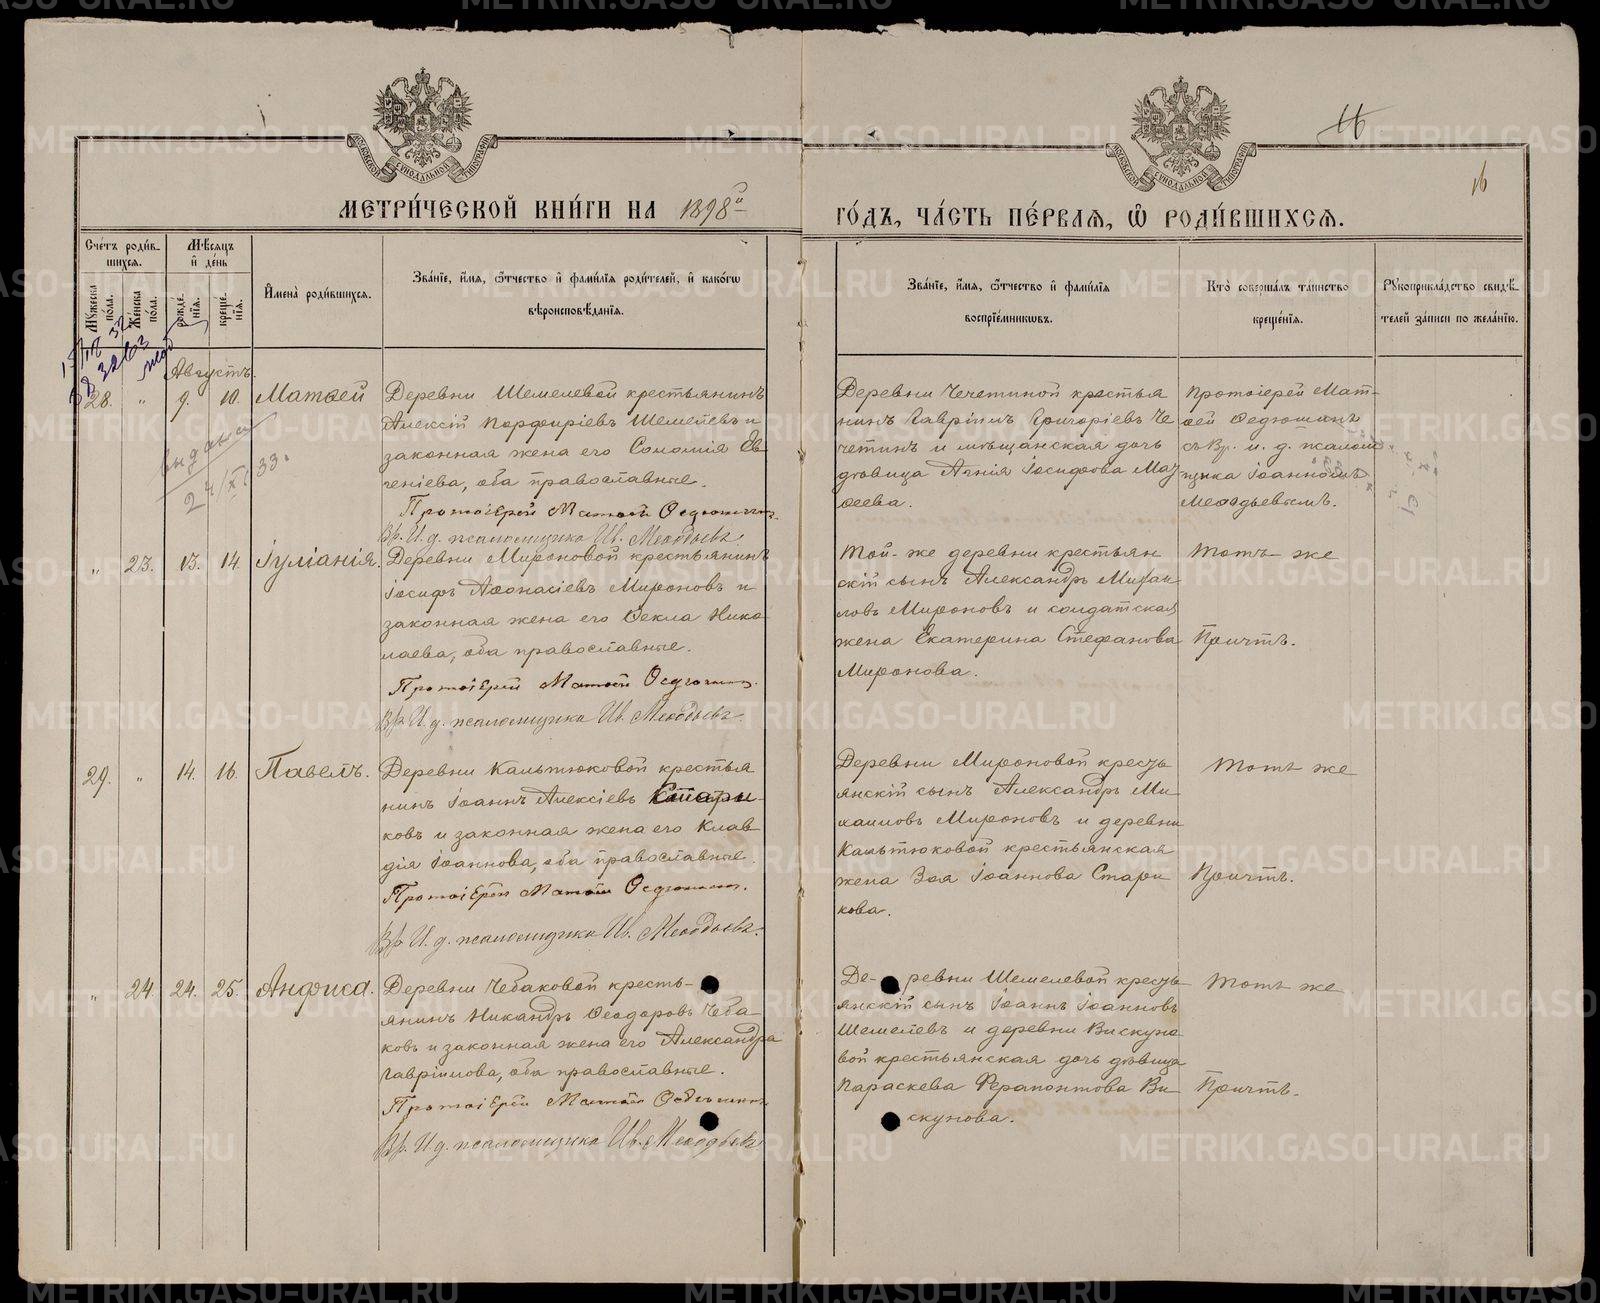 МОСКОВСКОЙ СУНОДАЛЬНОЙ ТИПОГРАФІИ
МОСКОВСКОЙ СУНОДАЛЬНОЙ ТИПОГРАФІИ
16
16
МЕТРИ́ЧЕСКОЙ КНИ́ГИ НА 1898й
ГО́ДЪ, ЧА́СТЬ ПЕ́РВАЯ, Ѽ РОДИ́ВШИХСЯ.
Сче́тъ роди́в-
шихся.
Мꙋ́жеска по́ла.
Же́нска по́ла.
Мѣ́сяцъ
и҆ де́нь
рожде́-
нїя.
креще́-
нїя.
И҆мена̀ роди́вшихся.
Зва́нїе, и҆́мя, ѻ҆́тчество и҆ фами́лїя роди́телей, и҆ како́гѡ
вѣроисповѣ́данїя.
Зва́нїе, и҆́мя, ѻ҆́тчество и҆ фами́лїя
воспрїе́мникѡвъ.
Кто̀ соверша́лъ та́инство
креще́нїя.
Рꙋкоприкла́дство свидѣ́-
телей за́писи по жела́нїю.
Августъ.
28. " 9. 10. Матѳей
выдана
24/XI 33.
Деревни Шемелевой крестьянинъ
Алексій Порфиріевъ Шемелевъ и
законная жена его Соломія Ев
геніева, оба православные.
Протоіерей Матѳей Ѳедюшинъ.
Вр. И. д. псаломщика Ив. Меѳодьевъ.
Деревни Чечетиной крестья
нинъ Гавріилъ Григоріевъ Че
четинъ и мѣщанская дочь
дѣвица Агнія Іосифова Маз
ѳеева.
Протоіерей Мат-
ѳей Ѳедюшинъ
съ Вр. и. д. псалом
щика Іоанномъ
Меѳодьевымъ.
" 23. 13. 14. Іуліанія.
Деревни Мироновой крестьянинъ
Іосифъ Аѳонасіевъ Мироновъ и
законная жена его Ѳекла Нико
лаева, оба православные.
Протоіерей Матѳей Ѳедюшинъ.
Вр. И. д. псаломщика Ив. Меѳодьевъ.
Той-же деревни крестьян
скій сынъ Александръ Михаи
ловъ Мироновъ и солдатская
жена Екатерина Стефанова
Миронова.
Тотъ-же
Причтъ.
29. " 14. 16. Павелъ.
Деревни Кальтюковой крестья
нинъ Іоаннъ Алексіевъ Стари-
ковъ и законная жена его Клав
дія Іоаннова, оба православные.
Протоіерей Матѳей Ѳедюшинъ.
Вр. И. д. псаломщика Ив. Меѳодьевъ.
Деревни Мироновой кресть
янскій сынъ Александръ Ми
хаиловъ Мироновъ и деревни
Кальтюковой крестьянская
жена Зоя Іоаннова Стари
кова.
Тотъ же
Причтъ.
" 24. 24. 25. Анфиса.
Деревни Чебаковой кресть-
янинъ Никандръ Ѳеодоровъ Чеба-
ковъ и законная жена его Александра
Гавріилова, оба православные.
Протоіерей Матѳей Ѳедюшинъ.
Вр. И. д. псаломщика Ив. Меѳодьевъ.
Де- ревни Шемелевой кресть
янскій сынъ Іоаннъ Іоанновъ
Шемелевъ и деревни Вискуно
вой крестьянская дочь дѣвица
Параскева Ферапонтова Ви
скунова.
Тотъ же
Причтъ.
METRIKI.GASO-URAL.RU